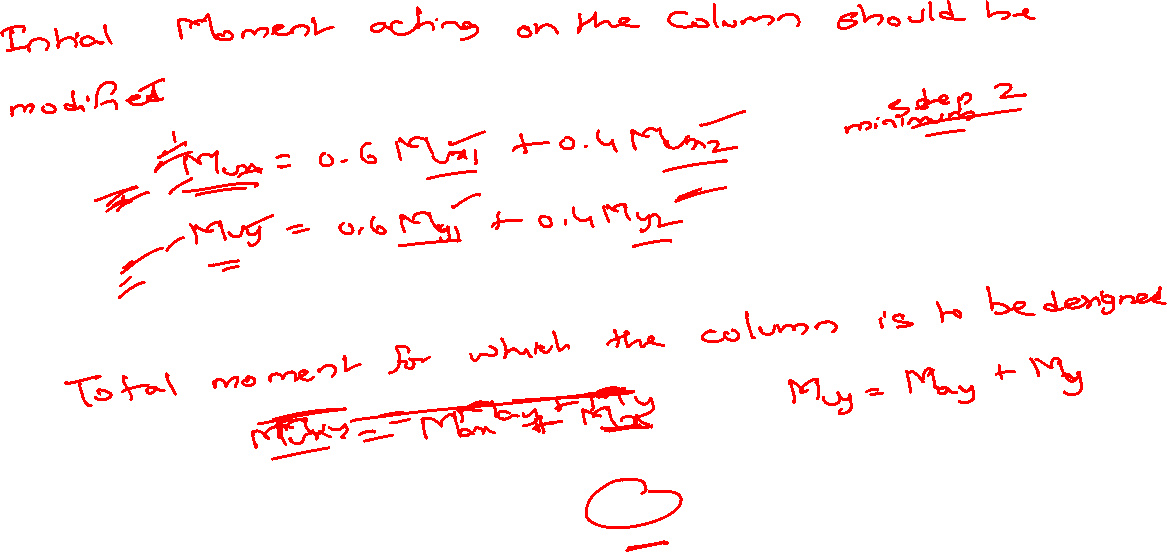 Initial Moment acting on the column should be
modified
step 2
minimum
Mux = 0.6 Mx1 + 0.4 Mux2
Muy = 0.6 My1 + 0.4 My2
Total moment for which the column is to be designed
Muy = May + My